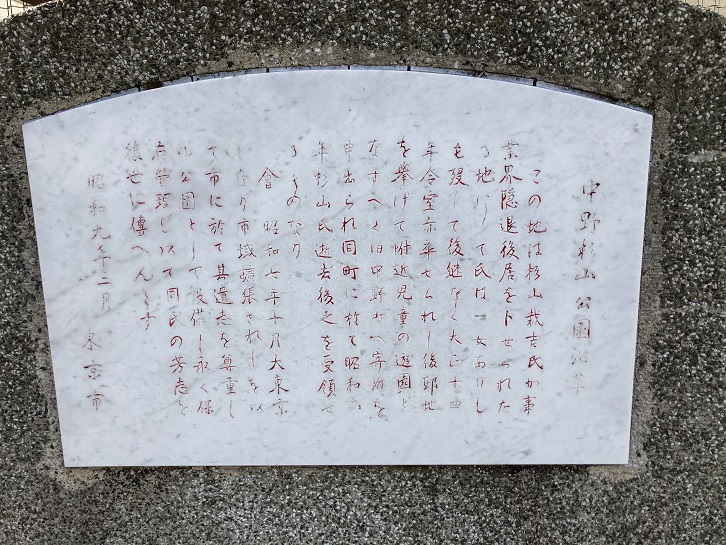 中野杉山公園沿革
この地は杉山栽吉氏が事
業界隠退後居を卜せられた
る地にして氏は一女ありし
も歿して後継なく大正十四
年令室亦卒せられし後邸地
を挙げて附近児童の遊園と
なすべく旧中野町へ寄附を
申出られ同町に於て昭和六
年杉山氏逝去後之を受領せ
るものなり
會 昭和七年十月大東京
となり市域擴張されしを以
て市に於て其遺志を尊重し
公園として設備し永く保
存管理しいて同氏の芳志を
後世に傳へんとす
昭和九年二月 東京市